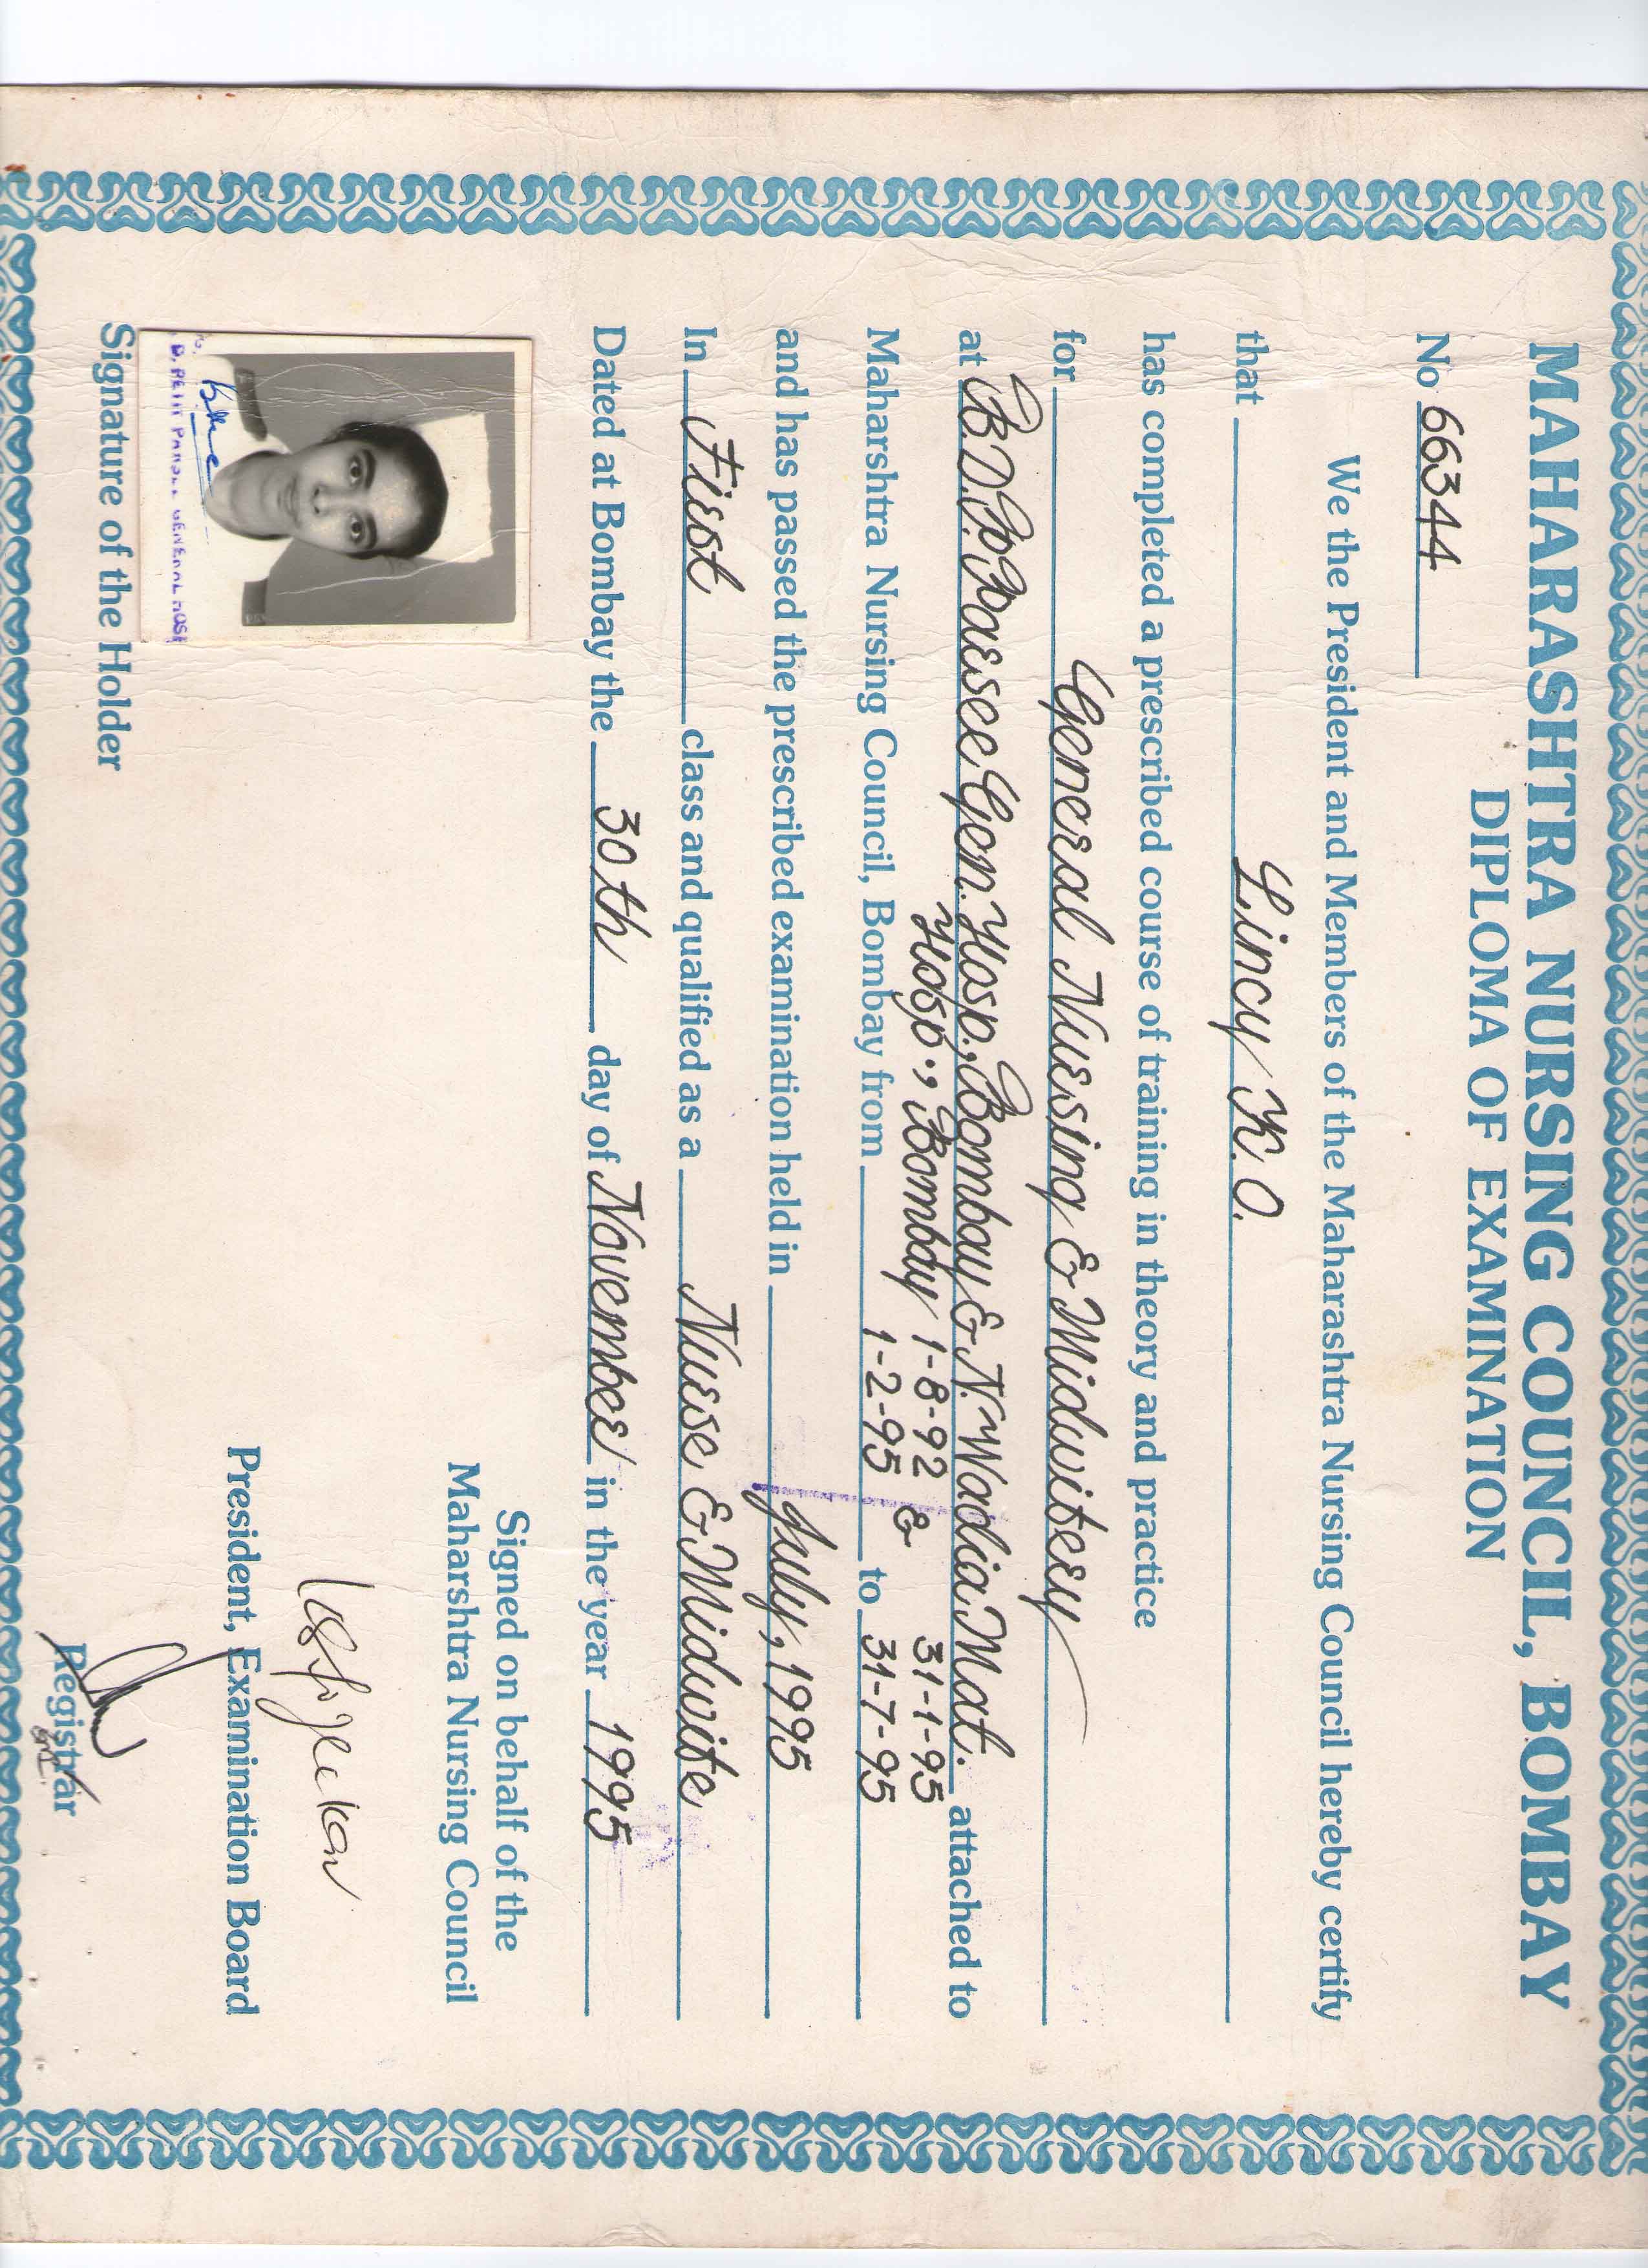 MAHARASHTRA NURSING COUNCIL, BOMBAY
DIPLOMA OF EXAMINATION
No 66344
We the President and Members of the Maharashtra Nursing Council hereby certify
that Lincy K.O.
has completed a prescribed course of training in theory and practice
for General Nursing & Midwifery
at B.D.P. Parsee Gen. Hosp., Bombay & N. Wadia Mat. attached to
Hosp., Bombay 1-8-92 & 31-1-95
Maharshtra Nursing Council, Bombay from 1-2-95 to 31-7-95
and has passed the prescribed examination held in July, 1995
In First class and qualified as a Nurse & Midwife
Dated at Bombay the 30th day of November in the year 1995
Signed on behalf of the
Maharshtra Nursing Council
President, Examination Board
Registrar
GENERAL HOSP
Signature of the Holder